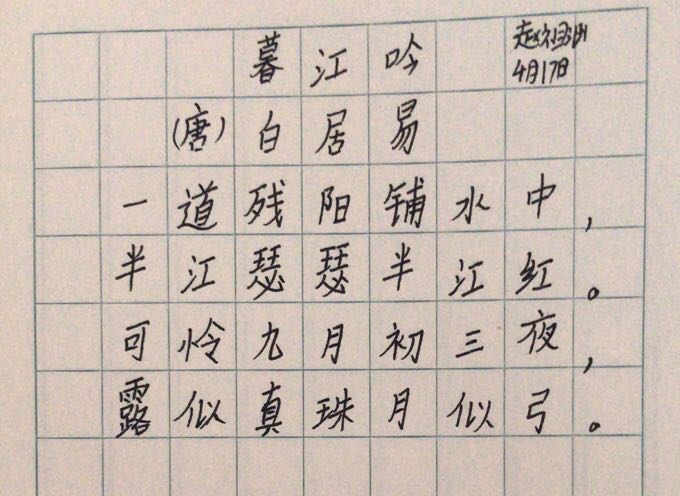 暮江吟
4月17日
(唐)白居易
一道残阳铺水中,
半江瑟瑟半江红。
可怜九月初三夜,
露似真珠月似弓。